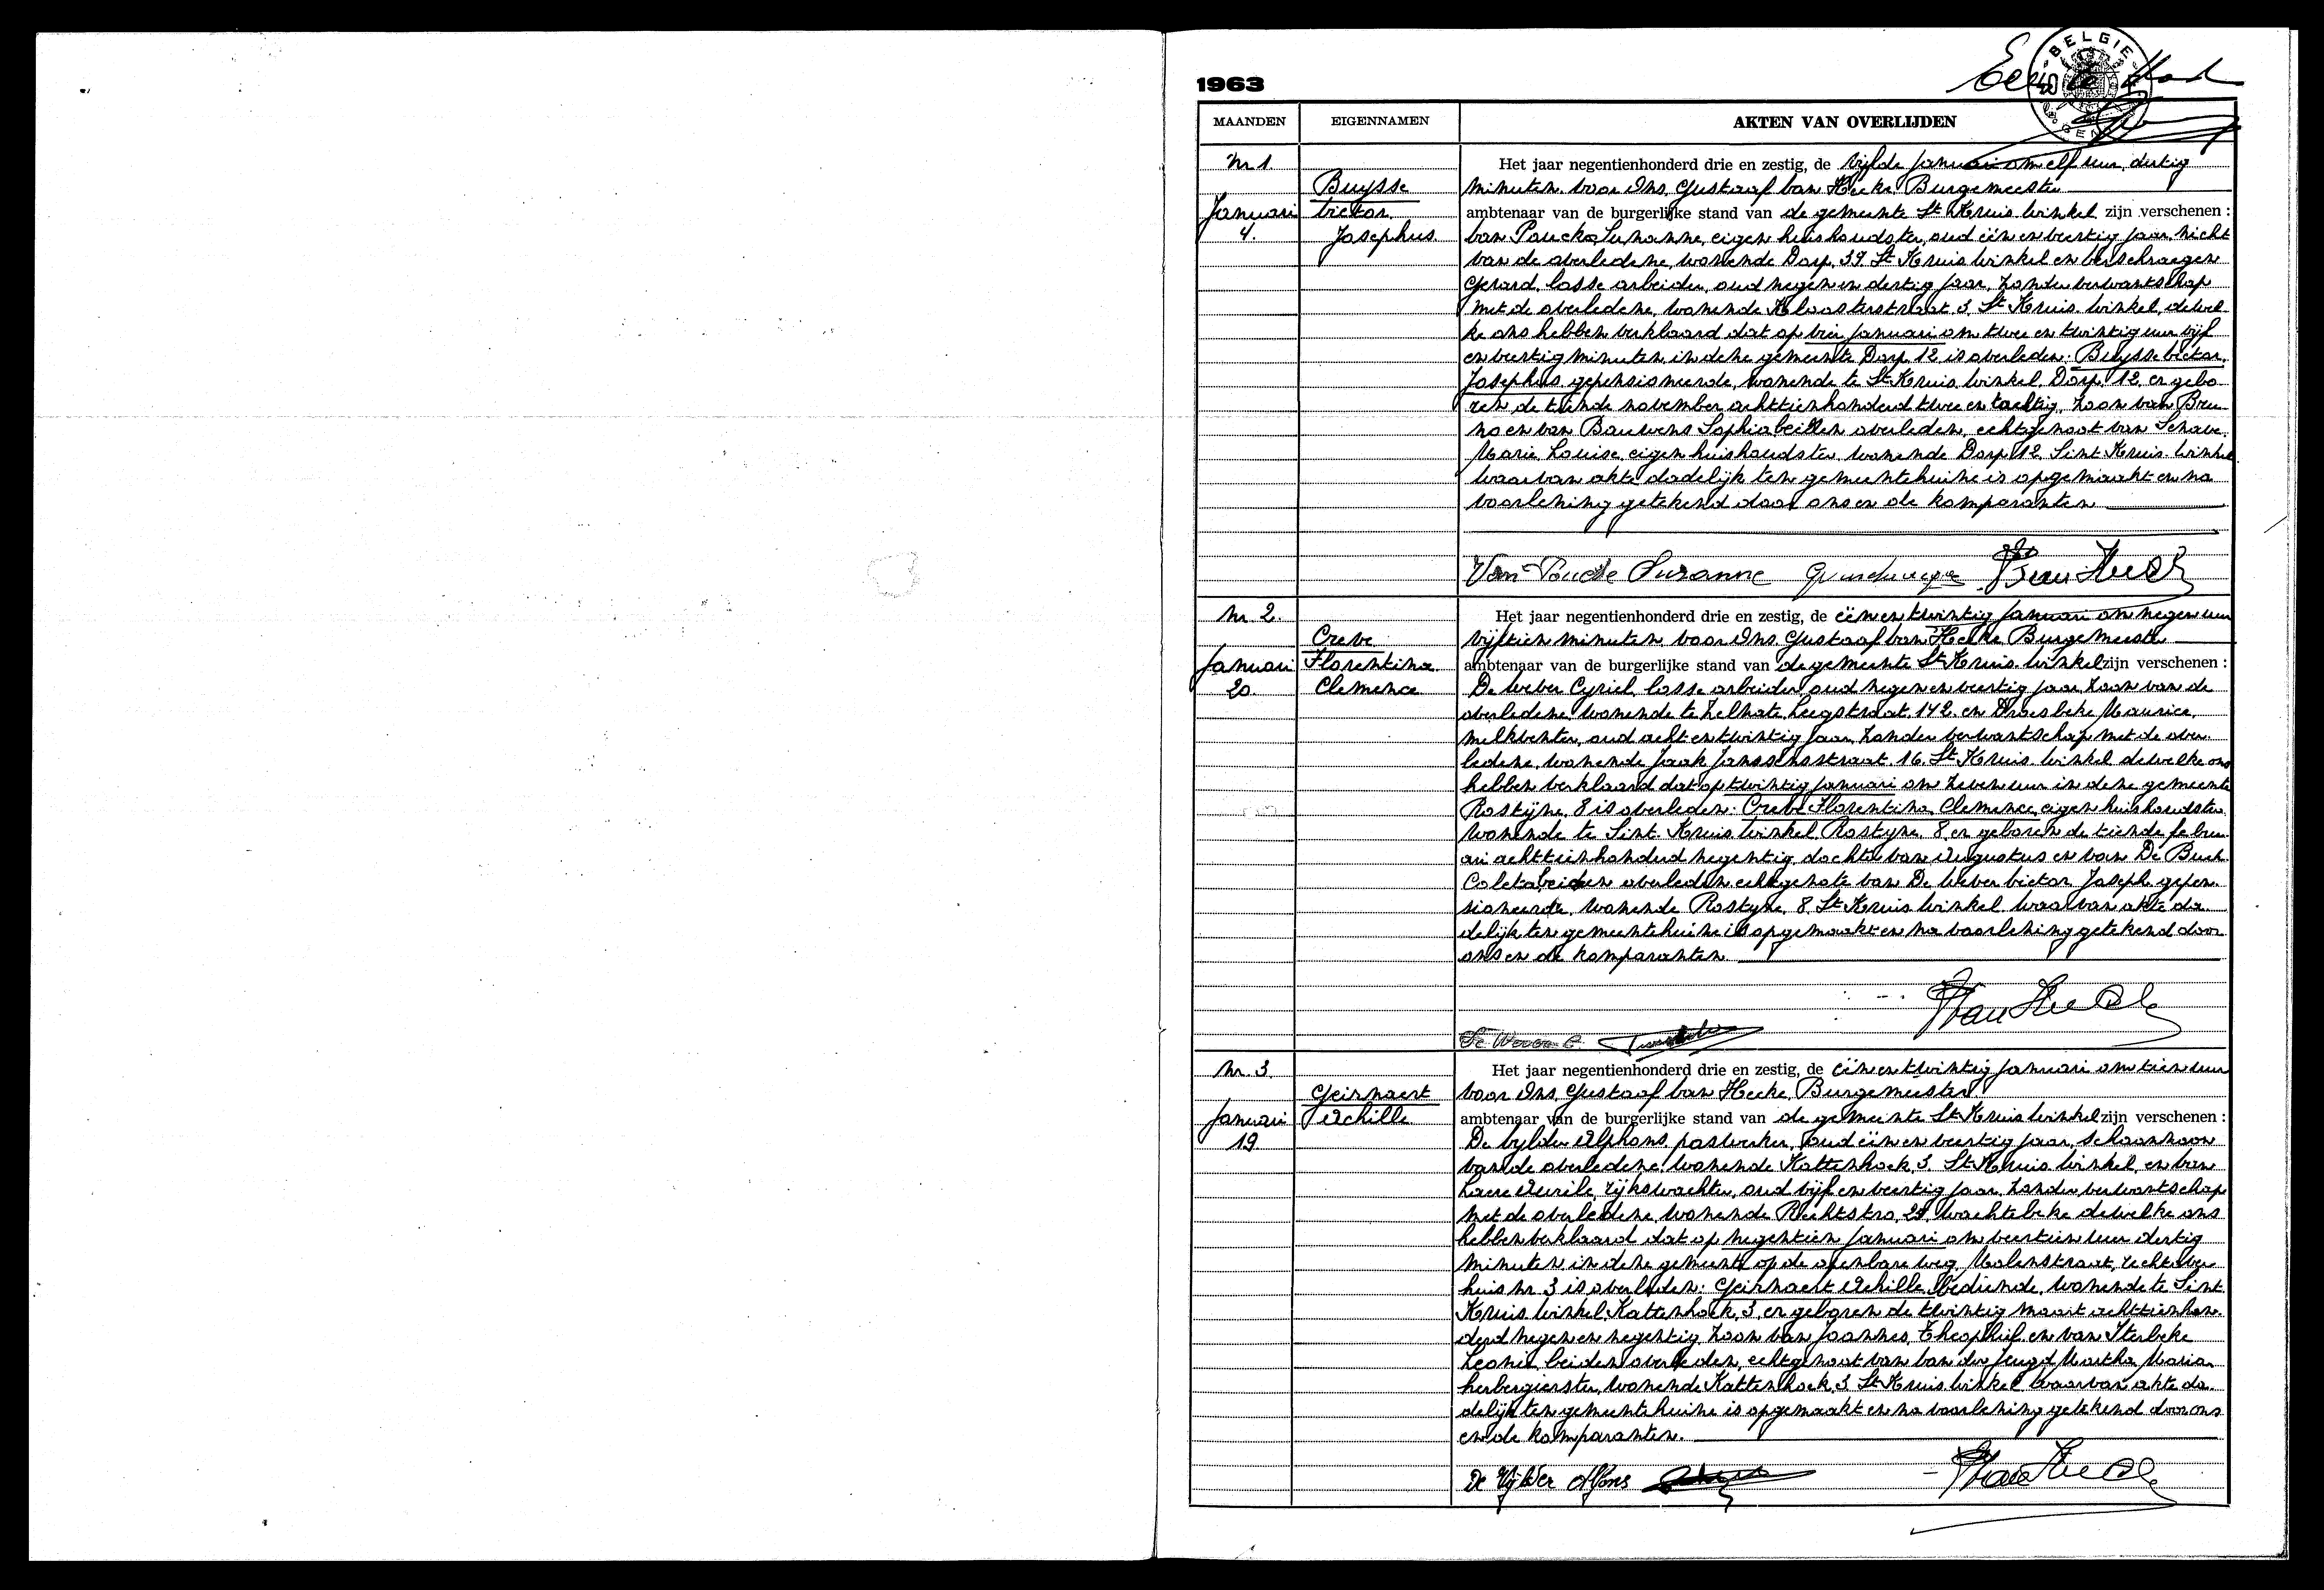 1963
BELGIE
MAANDEN EIGENNAMEN AKTEN VAN OVERLIJDEN
Nr 1. Het jaar negentienhonderd drie en zestig, de vijfde januari om elf uur, dertig
Buysse minuten voor Ons, Gustaaf Van Hecke, Burgemeester
Januari Victor ambtenaar van de burgerlijke stand van de gemeente St Kruis Winkel zijn verschenen :
4. Josephus. Van Poucke Susanne, eigen huishoudster, oud één en veertig jaar, nicht
van de overledene, wonende Dorp, 37 St Kruis Winkel en Verschraegen
Gerard, losse arbeider, oud negen en dertig jaar, zonder verwantschap
met de overledene, wonende Kloosterstraat 3, St Kruis Winkel, dewel-
ke ons hebben verklaard dat op vier januari om twee en twintig uur vijf
en veertig minuten in deze gemeente Dorp 12 is overleden: Buysse Victor,
Josephus, gepensioneerde, wonende te St Kruis Winkel, Dorp, 12, en gebo-
ren de tiende november achttienhonderd twee en tachtig, zoon van Bru-
no en van Bauwens Sophia beiden overleden, echtgenoot van Schave
Marie Louise, eigen huishoudster, wonende Dorp 12, Sint Kruis Winkel
waarvan akte dadelijk ten gemeentehuize is opgemaakt en na
voorlezing getekend door ons en de komparanten
Van Poucke Suzanne
Nr. 2. Het jaar negentienhonderd drie en zestig, de één en twintig januari om negen uur
Creve vijftien minuten voor Ons, Gustaaf Van Hecke Burgemeester
Januari Florentina ambtenaar van de burgerlijke stand van de gemeente St Kruis Winkel zijn verschenen :
20. Clemence De Wever Cyriel, losse arbeider, oud negen en veertig jaar, zoon van de
overledene, wonende te Zelzate, Leegstraat, 142, en Droesbeke Maurice,
melkventer, oud acht en twintig jaar, zonder verwantschap met de over-
ledene, wonende Jaak Janssensstraat, 16, St Kruis Winkel dewelke ons
hebben verklaard dat op twintig januari om zeven uur in deze gemeente
Rostyne, 8 is overleden: Creve Florentina Clemence, eigen huishoudster,
wonende te Sint Kruis Winkel, Rostyne, 8, en geboren de tiende febru-
ari achttienhonderd negentig, dochter van Augustus en van De Buck
Coleta, beiden overleden echtgenote van De Wever Victor Joseph, gepen-
sioneerde, wonende Rostyne, 8, St Kruis Winkel waarvan akte da-
delijk ten gemeentehuize is opgemaakt en na voorlezing getekend door
ons en de komparanten.
De Wever C.
Nr. 3. Het jaar negentienhonderd drie en zestig, de één en twintig januari om tien uur
Geirnaert voor Ons, Gustaaf Van Hecke, Burgemeester
Januari Achille ambtenaar van de burgerlijke stand van de gemeente St Kruis Winkel zijn verschenen :
19. De Vylder Alphons, paswerker, oud één en veertig jaar, schoonzoon
van de overledene, wonende Kattenhoek, 3, St Kruis Winkel, en Van
rijkswachter, oud vijf en veertig jaar, zonder verwantschap
met de overledene, wonende Wachtebeke dewelke ons
hebben verklaard dat op negentien januari om veertien uur dertig
minuten in deze gemeente op de openbare weg, Molenstraat, rechtover
huis nr 3 is overleden: Geirnaert Achille, bediende, wonende te Sint
Kruis Winkel, Kattenhoek, 3, en geboren de twintig maart achttienhon-
derd negen en negentig, zoon van Joannes, Theophiel en van Sterbeke
Leonie, beiden overleden, echtgenoot van Van der Jeugd Martha Maria,
herbergierster, wonende Kattenhoek, 3 St Kruis Winkel waarvan akte da-
delijk ten gemeentehuize is opgemaakt en na voorlezing getekend door ons
en de komparanten.
De Vylder Alfons